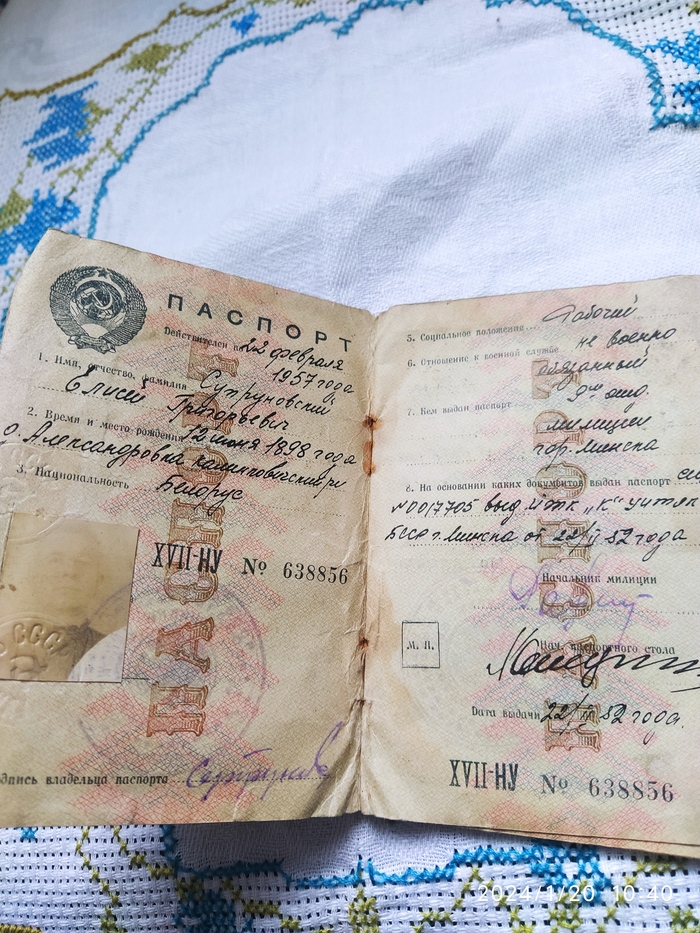 ПАСПОРТ
Действителен по 22 февраля
1957 года
1. Имя, отчество, фамилия Супруновский
Елисей Григорьевич
2. Время и место рождения 12 июня 1898 года
о. Александровка
3. Национальность Белорус
XVII-НУ № 638856
СССР
дпись владельца паспорта
5. Социальное положение Рабочий
6. Отношение к военной службе не военно
обязанный
7. Кем выдан паспорт 9ым отд.
милиции
гор. Минска
8. На основании каких документов выдан паспорт
№ 0017705 выд. "К"
БССР г. Минска от 22/II 52 года
Начальник милиции
М. П.
Нач. паспортного стола
Дата выдачи 22/II 52 года.
XVII-НУ № 638856
2024/1/20 10:40